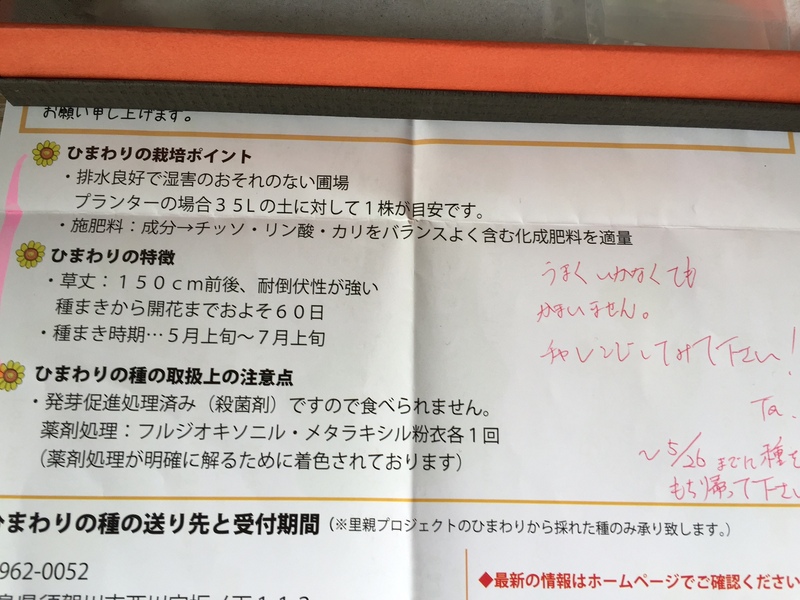 お願い申し上げます。
ひまわりの栽培ポイント
・排水良好で湿害のおそれのない圃場
プランターの場合３５Ｌの土に対して１株が目安です。
・施肥料：成分→チッソ・リン酸・カリをバランスよく含む化成肥料を適量
ひまわりの特徴
・草丈：１５０ｃｍ前後、耐倒伏性が強い
種まきから開花までおよそ６０日
・種まき時期…５月上旬〜７月上旬
うまくいかなくても
かまいません。
チャレンジしてみて下さい！
ひまわりの種の取扱上の注意点
・発芽促進処理済み（殺菌剤）ですので食べられません。
薬剤処理：フルジオキソニル・メタラキシル粉衣各１回
（薬剤処理が明確に解るために着色されております）
Ta.
〜5/26 までに種を
もち帰って下さい
ひまわりの種の送り先と受付期間（※里親プロジェクトのひまわりから採れた種のみ承り致します。）
962-0052
◆最新の情報はホームページでご確認ください